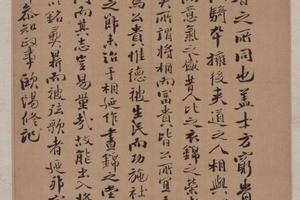 昔之所同也蓋士方窮
騎卒擁後夾道之人相與
意氣之盛昔人比之衣錦之榮
所謂將相而富貴皆公所宜
為公貴惟德被生民而功施社
之節來治於相迺作晝錦之堂
何而其志豈易量哉故能出入將
以銘彝鼎而被弦歌者迺邦
參知政事歐陽修記